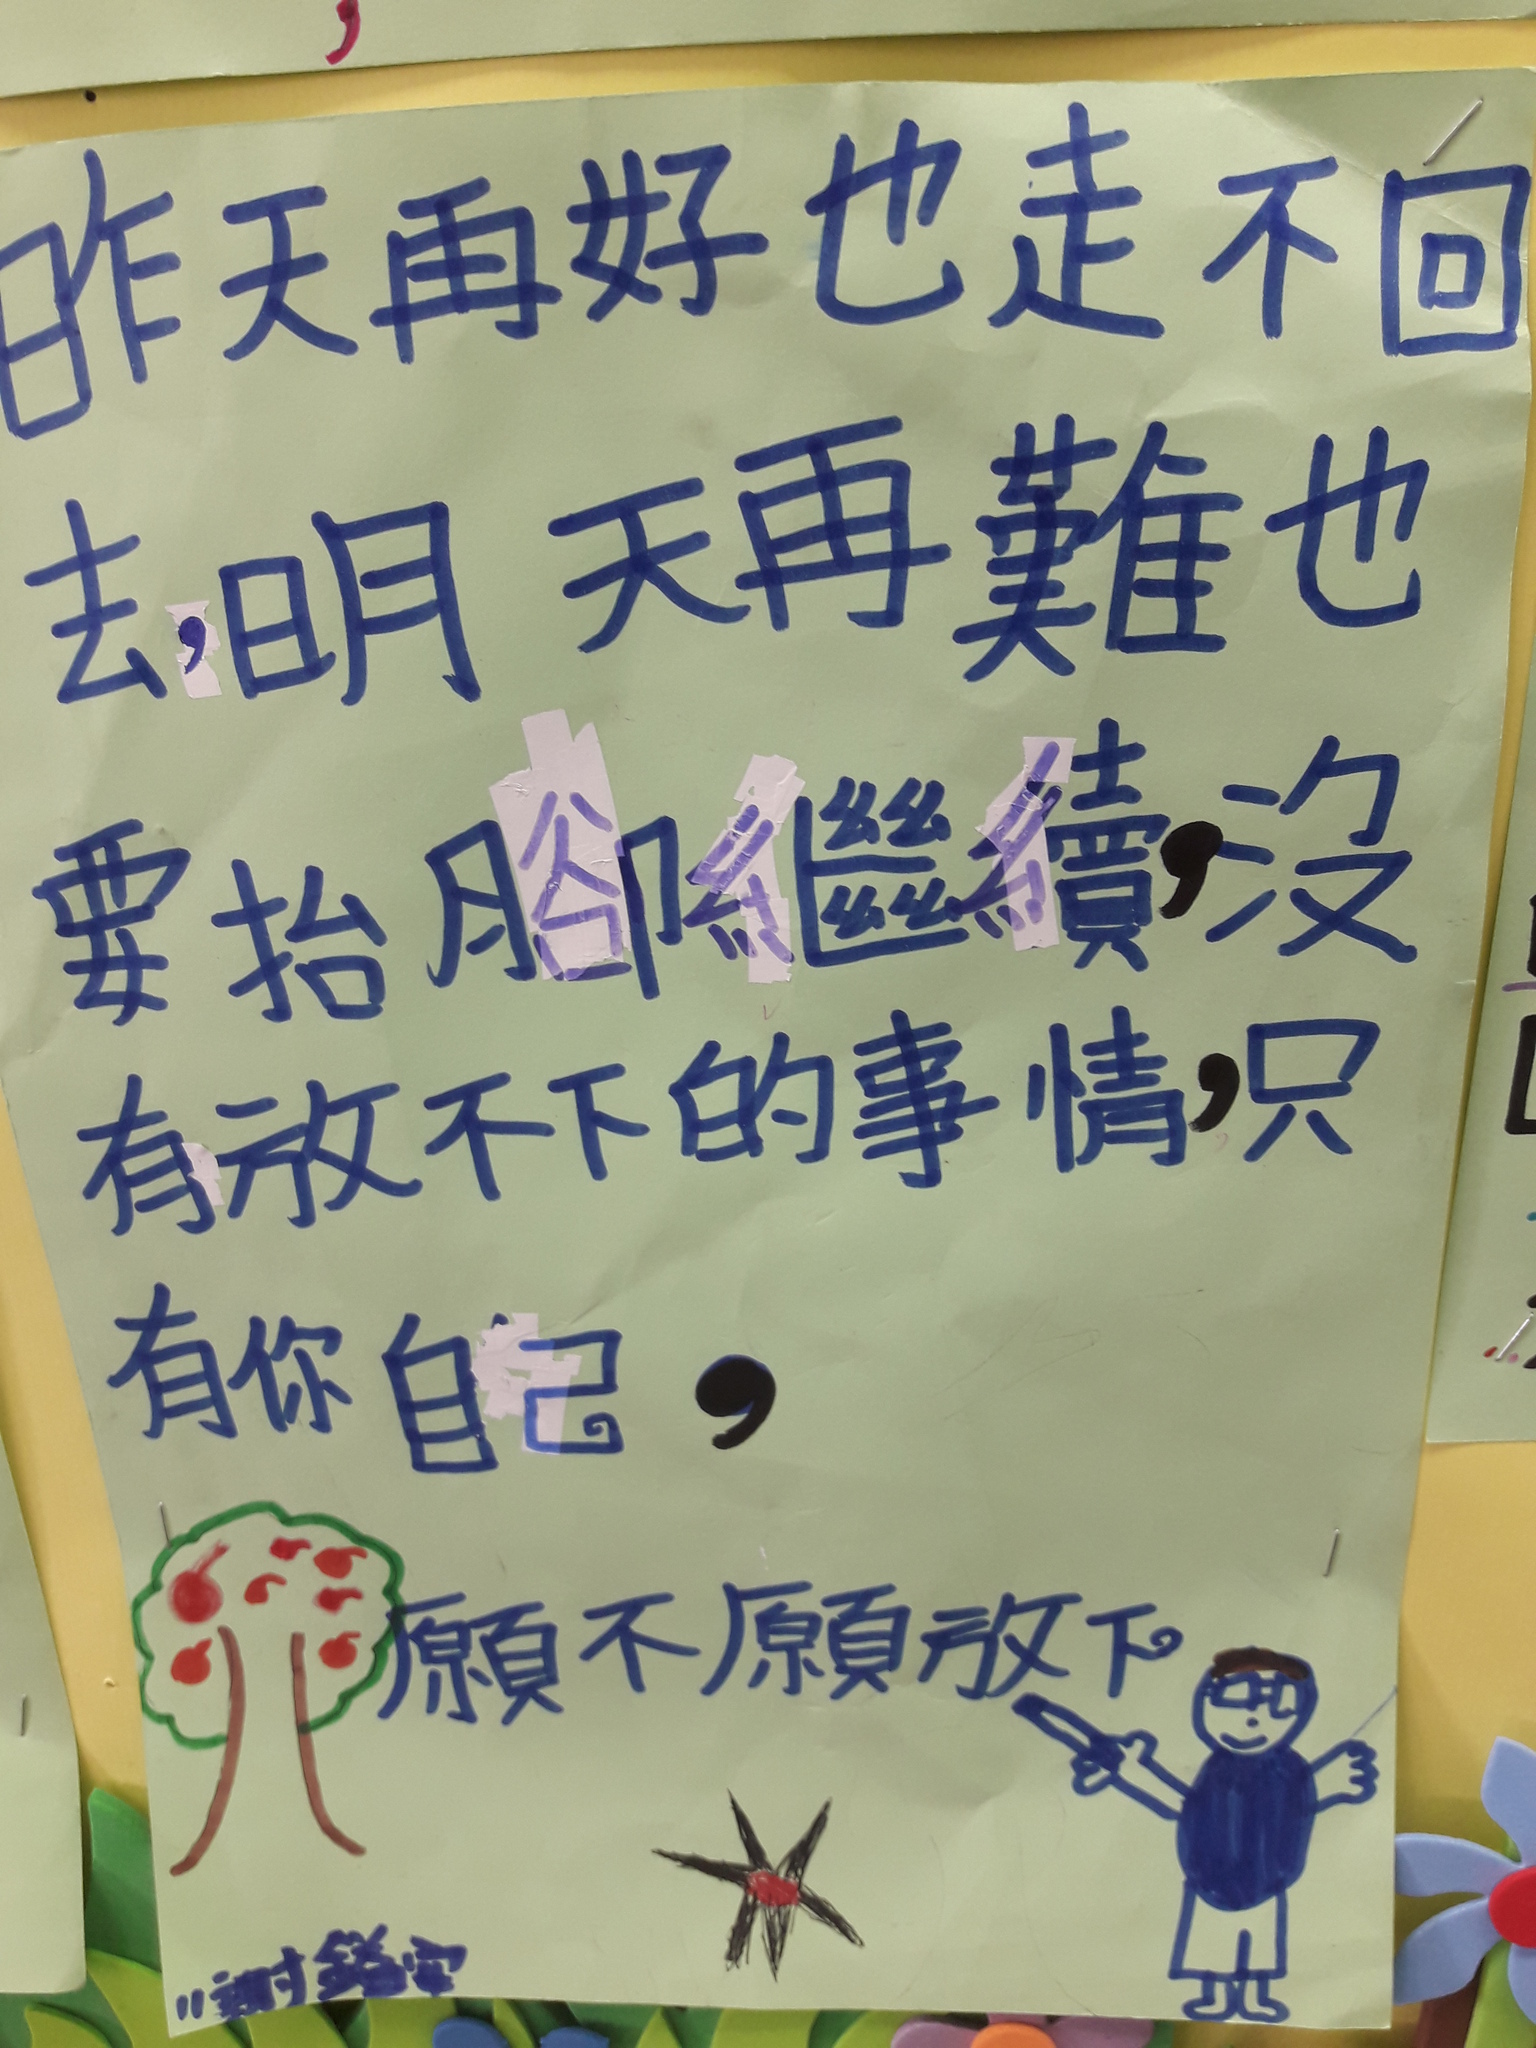 昨天再好也走不回
去,明天再難也
要抬腳繼續,沒
有放不下的事情,只
有你自己,
願不願放下。